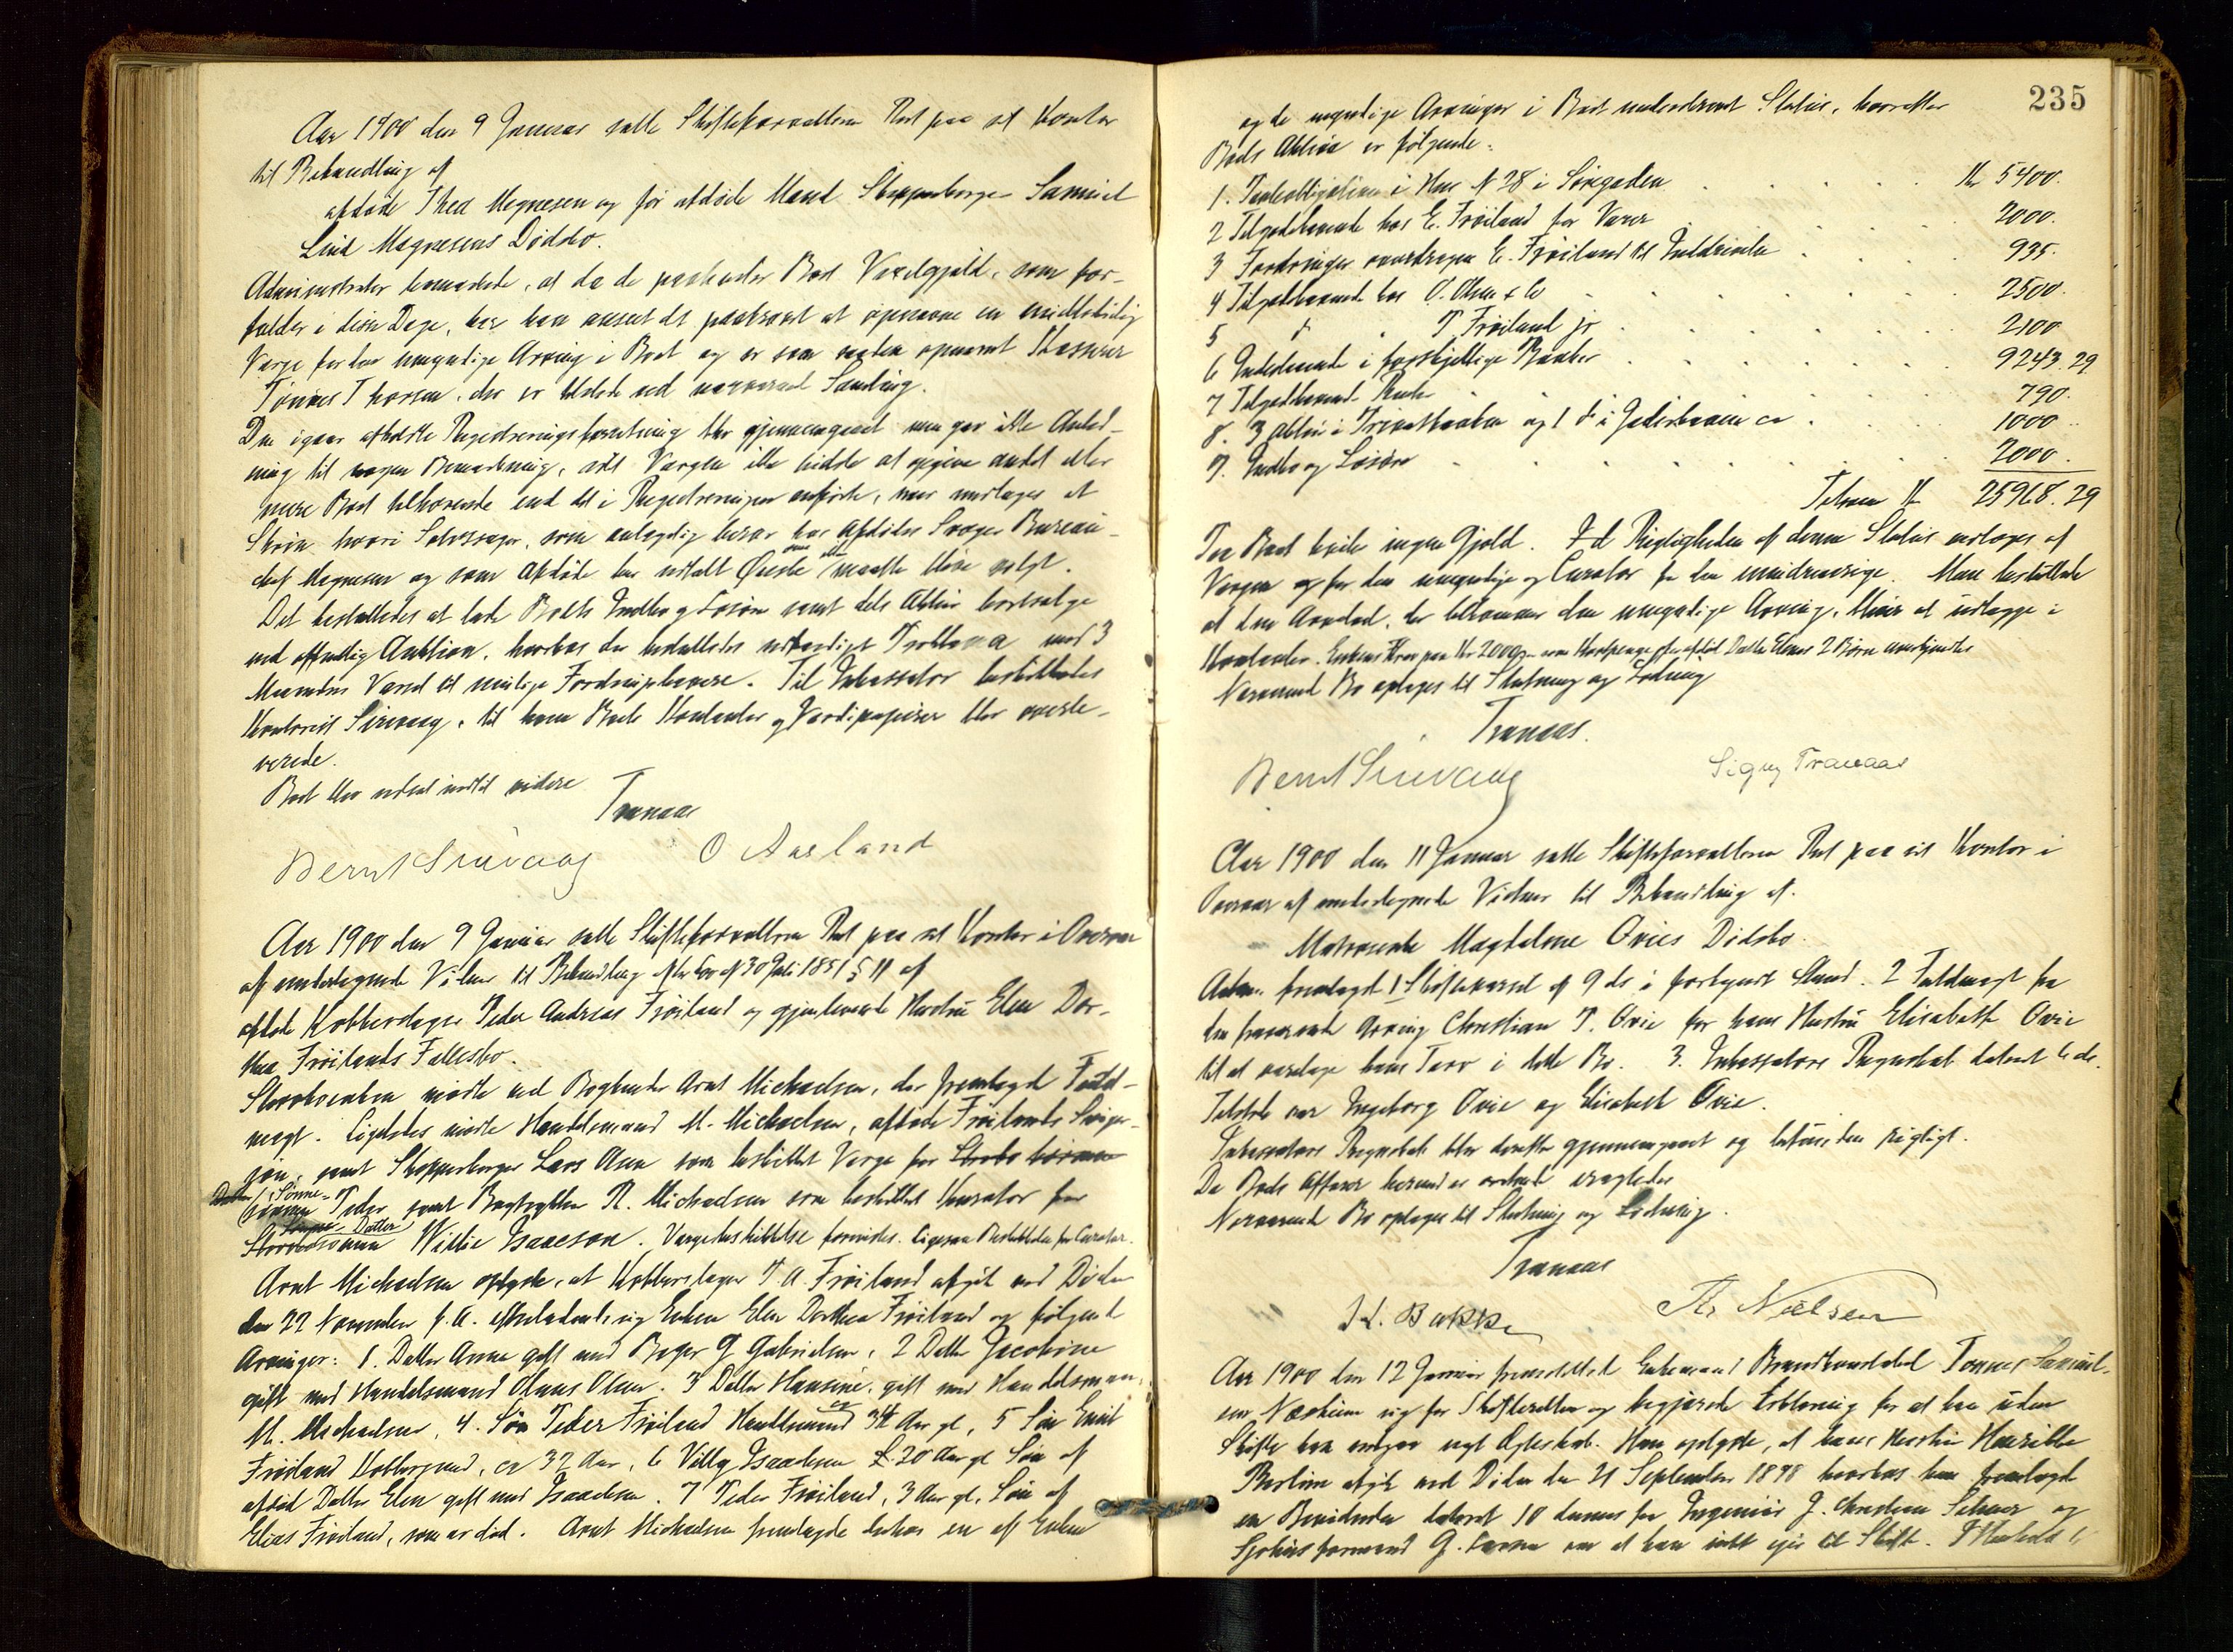 Aar 1900 den 9 Januar satte Skifteforvalteren Ret paa sit Kontor
til Behandling af
afdøde Thea Magnesen og før afdøde Mand Skipperborger Samuel
Lind Magnesens Dødsbo.
Administrator bemærkede, at da de paahviler Boet Vexelgjæld, som for-
falder i disse Dage, har han anseet det paakrævet at opnævne en midlertidig
Værge for den umyndige Arving i Boet og er som saadan opnævnt Kasserer
Tønnes Thorsen, der er tilstede ved nærværende Samling.
Den igaar afholdte Registreringsforretning blev gjennemgaaet men gav ikke Anled-
ning til nogen Bemærkning, idet Værgen ikke vidste at opgive andet eller
mere Boet tilhørende end det i Registreringen anførte, naar undtages et
Skrin hvori Sølvsager, som antagelig beror hos Afdødes Svoger Bureau-
chef Magnesen og som Afdøde har udtalt Ønske om ikke maatte blive solgt.
Det besluttedes at lade Boets Indbo og Løsøre samt dets Aktier bortsælge
ved offentlig Auktion, hvorhos der besluttedes udfærdiget Proklama med 3
Maaneders Varsel til mulige Fordringshavere. Til Inkassator beskikkedes
Kontorist Sirevaag, til ham Boets Kontanter og Værdipapirer blev overle-
verede.
Boet blev udsat indtil videre
Tranaas
Bernt Sirevaag O Aarland
Aar 1900 den 9 Januar satte Skifteforvalteren Ret paa sit Kontor i Overvær
af undertegnede Vidner til Behandling efter Lov af 30 Juli 1851 § 11 af
afdøde Kobberslager Peder Andreas Frøiland og gjenlevende Hustru Elen Dor-
thea Frøilands Fællesbo.
Stervboenken mødte ved Boghandler Arnt Michaelsen, der fremlagde Fuld-
magt. Ligeledes mødte Handelsmand M. Michaelsen, afdøde Frøilands Sviger-
søn, samt Skipperborger Lars Olsen som beskikket Værge for
Sønne-
Peder samt Bogtrykker R. Michaelsen som beskikket Kurator for
Datter
Willie Isaacson. Værgebeskikkelse forevistes. Ligesaa Beskikkelse for Curator.
Arnt Michaelsen oplyste, at Kobberslager P. A. Frøiland afgik ved Døden
den 22 November f. A. efterladende sig Enken Elen Dorthea Frøiland og følgende
Arvinger: 1. Datter Anna gift med Bager G Gabrielsen, 2 Datter Jacobine
gift med Handelsmand Olaus Olsen. 3 Datter Hansine, gift med Handelsmand
M. Michaelsen, 4. Søn Peder Frøiland Handelsmand ca 34 Aar gl, 5 Søn Emil
Frøiland , ca 32 Aar, 6 Villy Isaachsen 20 Aar gl Søn af
afdød Datter Elen gift med Isaachsen. 7 Peder Frøiland, 3 Aar gl. Søn af
Elias Frøiland, som er død. Arnt Michaelsen fremlagde derhos en af Enken
235
og de myndige Arvinger i Boet underskrevet Status, hvorefter
Boets Aktiva er følgende:
1. Panteobligation i Hus No 28 i Søregaden Kr 5400.
2 Tilgodehavende hos E. Frøiland for Varer 2000.
3 Fordringer overdragen E. Frøiland til Inddrivelse 935.
4 Tilgodehavende hos O. Olsen & Co 2500.
5 do " P Frøiland jr 2100
6 Indestaaende i forskjellige Banker 9243.29
7 Tilgodehavende Renter 790.
8. 3 Aktier i Privatbanken og 1 do i Jæderbanen ca 1000
9. Indbo og Løsøre 2000.
Tilsam Kr 25968.29
Paa Boet hviler ingen Gjæld. Rigtigheden af denne Status vedtoges af
Værgen for den umyndige og Curator for den mindreaarige. Man besluttede
at den Arvelod, der tilkommer den umyndige Arving, bliver at udlægge i
Kontanter. Enkens Krav paa Kr 2000,- som Kostpenge for afdød Datter Elens 2 Børn anerkjendtes
Nærværende Bo optages til Slutning og Lodning
Tranaas.
Bernt Sirevaag Signy Tranaas
Aar 1900 den 11 Januar satte Skifteforvalteren Ret paa sit Kontor i
Overvær af undertegnede Vidner til Behandling af.
Matrosenke Magdalene Ovies Dødsbo.
Adm. fremlagde 1 Skiftevarsel af 9 ds i forkyndt Stand. 2 Fuldmagt fra
den fraværende Arving Christian P. Ovie for hans Hustru Elisabeth Ovie
til at varetage hans Tarv i dette Bo. 3. Inkassators Regnskab dateret 6 ds.
Tilstede var Ingeborg Ovie og Elisabeth Ovie.
Inkassators Regnskab blev derefter gjennemgaaet og befunden rigtigt.
Da Boets Affærer herved er ordnede eragtedes
Nærværende Bo optages til Slutning og Lodning.
Tranaas
H. Bakke Th. Nielsen
Aar 1900 den 12 Januar fremstillede Enkemand Brandkonstabel Tønnes Samuel-
sen Næsheim sig for Skifteretten og begjærede Erklæring for at han uden
Skifte kan indgaa nyt Ægteskab. Han oplyste, at hans Hustru
afgik ved Døden den 21 September 1898 hvorhos han fremlagde
en Bevidnelse dateret 10 dennes fra Ingeniør J. Christian og
formand G. Larsen om at han intet ejer til Skifte.